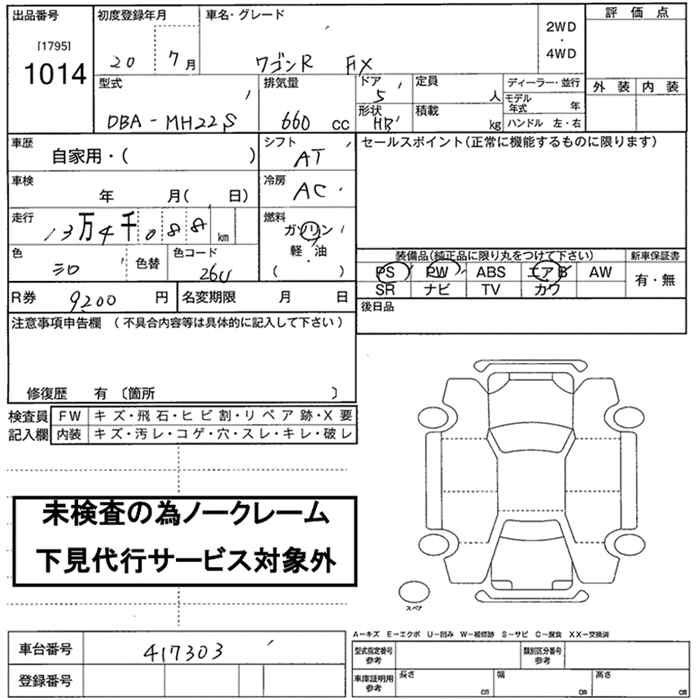 出品番号 初度登録年月 車名・グレード 2WD・4WD 評価点
[1795]
1014
20 7月 ワゴンR FX
外装 内装
型式 排気量 ドア 定員 ディーラー・並行
DBA-MH22S 660 cc 5 人 モデル年式 年
形状 HB 積載 kg ハンドル 左・右
車歴 シフト セールスポイント(正常に機能するものに限ります)
自家用・( ) AT
車検 冷房
年 月( 日) AC
走行 燃料
13万4千088 km ガソリン
軽・油
( )
色 色替 色コード 装備品(純正品に限り丸をつけて下さい) 新車保証書
シロ 26U PS PW ABS エアB AW 有・無
SR ナビ TV カワ
R券 9200 円 名変期限 月 日 後日品
注意事項申告欄 (不具合内容等は具体的に記入して下さい)
修復歴 有 〔箇所 〕
検査員 FW キズ・飛石・ヒビ割・リペア跡・X要
記入欄 内装 キズ・汚レ・コゲ・穴・スレ・キレ・破レ
未検査の為ノークレーム
下見代行サービス対象外
スペア
A―キズ E―エクボ U―凹み W―補修跡 S―サビ C―腐食 XX―交換済
車台番号 417303 型式指定番号 参考 類別区分番号 参考
登録番号 車庫証明用 参考 長さ cm 幅 cm 高さ cm